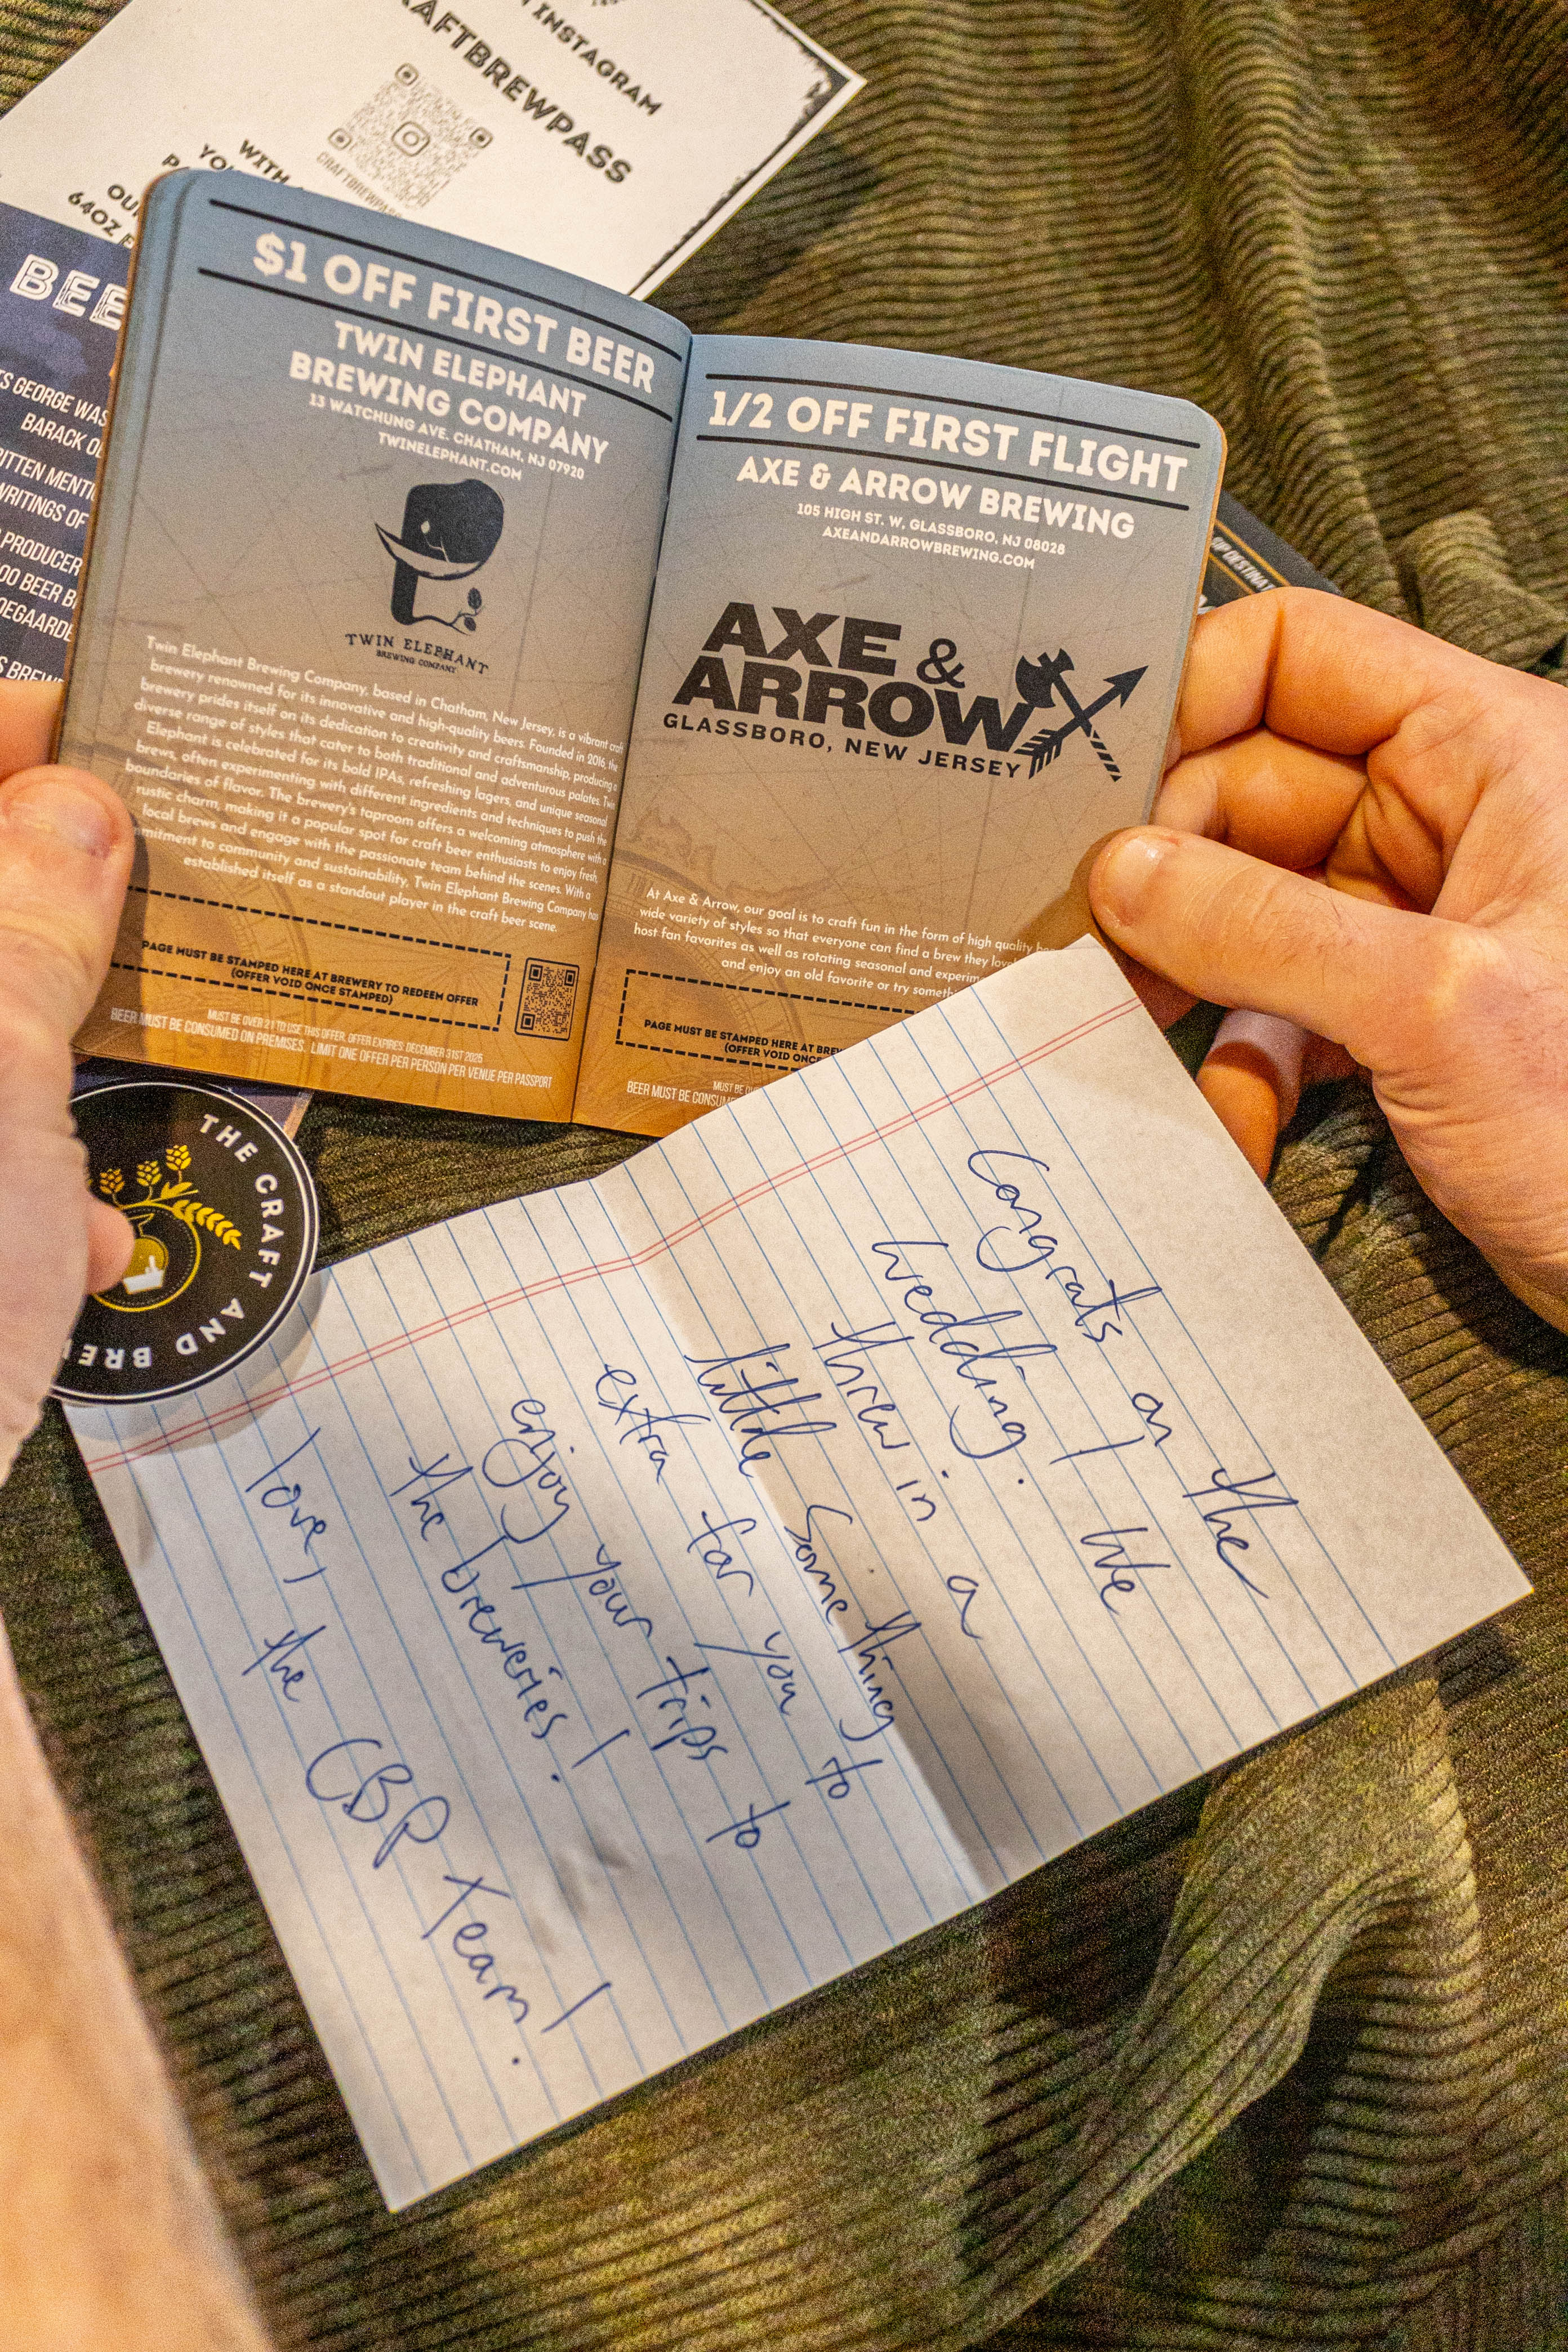 N INSTAGRAM
RAFTBREWPASS
CRAFTBREWPAS
WITH
YOU
OU
64OZ
BEE
S GEORGE WAS
BARACK O
ITTEN MENTI
WRITINGS OF
PRODUCER
00 BEER B
DEGAARDE
S BREW
$1 OFF FIRST BEER
TWIN ELEPHANT
BREWING COMPANY
13 WATCHUNG AVE. CHATHAM, NJ 07920
TWINELEPHANT.COM
TWIN ELEPHANT
BREWING COMPANY
Twin Elephant Brewing Company, based in Chatham, New Jersey, is a vibrant craft
brewery renowned for its innovative and high-quality beers. Founded in 2016, the
brewery prides itself on its dedication to creativity and craftsmanship, producing a
diverse range of styles that cater to both traditional and adventurous palates. Twin
Elephant is celebrated for its bold IPAs, refreshing lagers, and unique seasonal
brews, often experimenting with different ingredients and techniques to push the
boundaries of flavor. The brewery's taproom offers a welcoming atmosphere with a
rustic charm, making it a popular spot for craft beer enthusiasts to enjoy fresh,
local brews and engage with the passionate team behind the scenes. With a
mmitment to community and sustainability, Twin Elephant Brewing Company has
established itself as a standout player in the craft beer scene.
PAGE MUST BE STAMPED HERE AT BREWERY TO REDEEM OFFER
(OFFER VOID ONCE STAMPED)
MUST BE OVER 21 TO USE THIS OFFER. OFFER EXPIRES: DECEMBER 31ST 2025
BEER MUST BE CONSUMED ON PREMISES. LIMIT ONE OFFER PER PERSON PER VENUE PER PASSPORT
1/2 OFF FIRST FLIGHT
AXE & ARROW BREWING
105 HIGH ST. W, GLASSBORO, NJ 08028
AXEANDARROWBREWING.COM
AXE &
ARROW
GLASSBORO, NEW JERSEY
At Axe & Arrow, our goal is to craft fun in the form of high quality be
wide variety of styles so that everyone can find a brew they love
host fan favorites as well as rotating seasonal and experim
and enjoy an old favorite or try someth
PAGE MUST BE STAMPED HERE AT BREW
(OFFER VOID ONCE
MUST BE O
BEER MUST BE CONSUM
UP DESTINAT
THE CRAFT AND BREW
Congrats on the
wedding! We
threw in a
little something to
extra for you to
enjoy your trips to
the breweries!
love, the CBP Team!